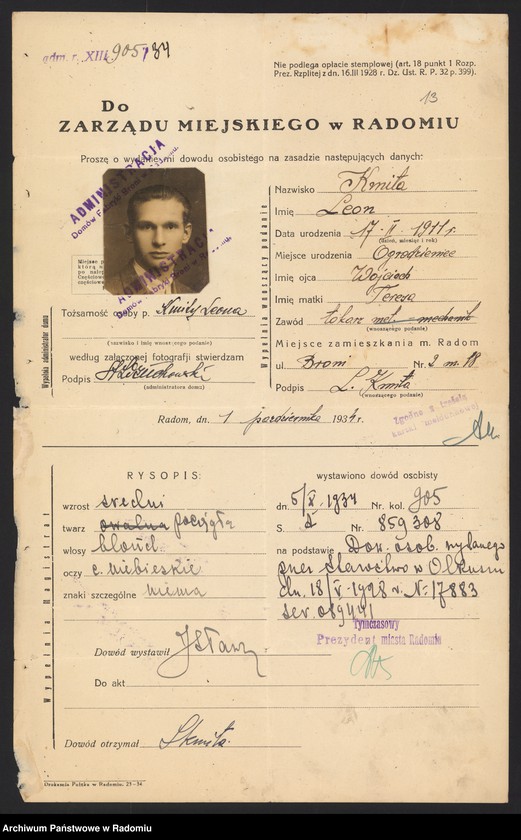 adm. r. XIII 905/34
Nie podlega opłacie stemplowej (art. 18 punkt 1 Rozp.
Prez. Rzplitej z dn. 16.III 1928 r. Dz. Ust. R. P. 32 p. 399).
13
Do
ZARZĄDU MIEJSKIEGO w RADOMIU
Proszę o wydanie mi dowodu osobistego na zasadzie następujących danych:
ADMINISTRACJA
Nazwisko Kmita
Imię Leon
Data urodzenia 17. II. 1911 r.
(dzień, miesiąc i rok)
Miejsce urodzenia Ogrodzieniec
Imię ojca Wojciech
Imię matki Teresa
Zawód tokarz met. mechanik
(wnoszącego podanie)
Miejsce zamieszkania m. Radom
ul. Broni Nr. 2 m. 18
Podpis L. Kmita
(wnoszącego podanie)
Wypełnia wnoszący podanie
ADMINISTRACJA
Tożsamość osoby p. Kmity Leona
(nazwisko i imię wnoszącego podanie)
według załączonej fotografii stwierdzam
Podpis
(administratora domu)
Wypełnia administrator domu
Radom, dn. 1 października 1934 r.
RYSOPIS:
wzrost średni
twarz owalna pociągła
włosy blond
oczy c. niebieskie
znaki szczególne niema
Wypełnia magistrat
wystawiono dowód osobisty
dn. 5/X. 1934 Nr. kol. 905
S. Nr. 859308
na podstawie Dow. osob. wydanego
przez Starostwo w Olkuszu
dn. 18/V-1928 r. N: 17883
ser. 089441
Tymczasowy
Prezydent miasta Radomia
Dowód wystawił
Do akt
Dowód otrzymał LKmita.
Drukarnia Polska w Radomiu. 25-34
Archiwum Państwowe w Radomiu